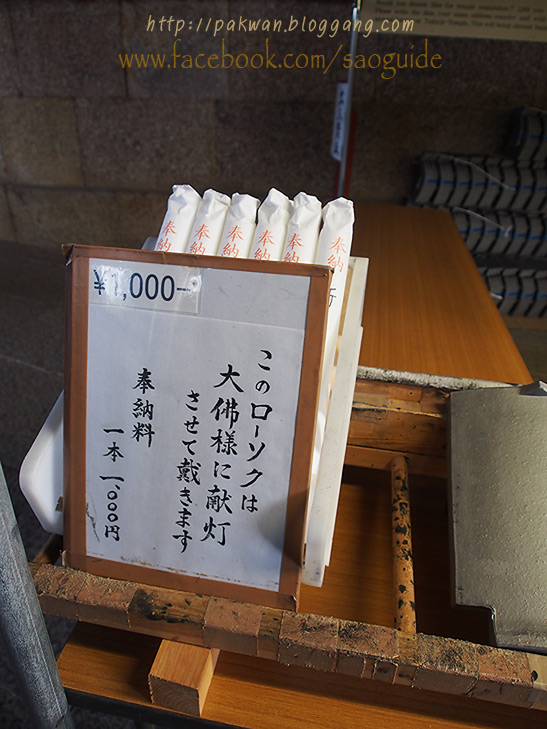 http://pakwan.bloggang.com
www.facebook.com/saoguide
奉納
奉納
奉納
奉納
奉納
奉納
¥1,000-
このローソクは
大佛様に献灯
させて戴きます
奉納料
一本 一、〇〇〇円